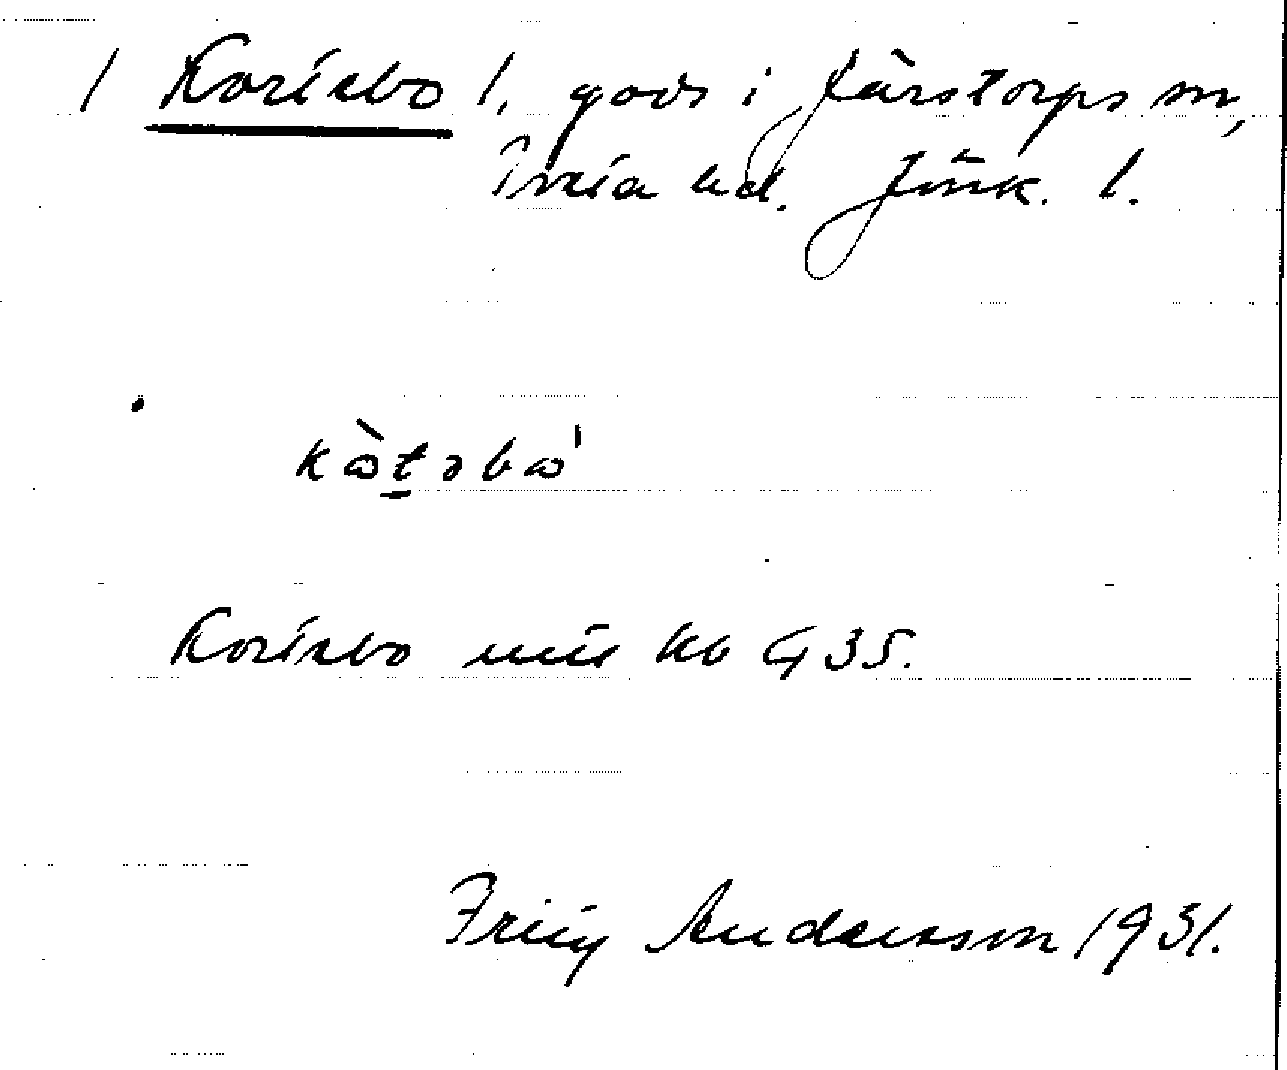 / Kortebo 1, gods i Järstorps sn,
Tveta hd. Jönk. l.
kòtəbo'
Kortebo uttr kb G 35.
Fritz Andersson 1931.